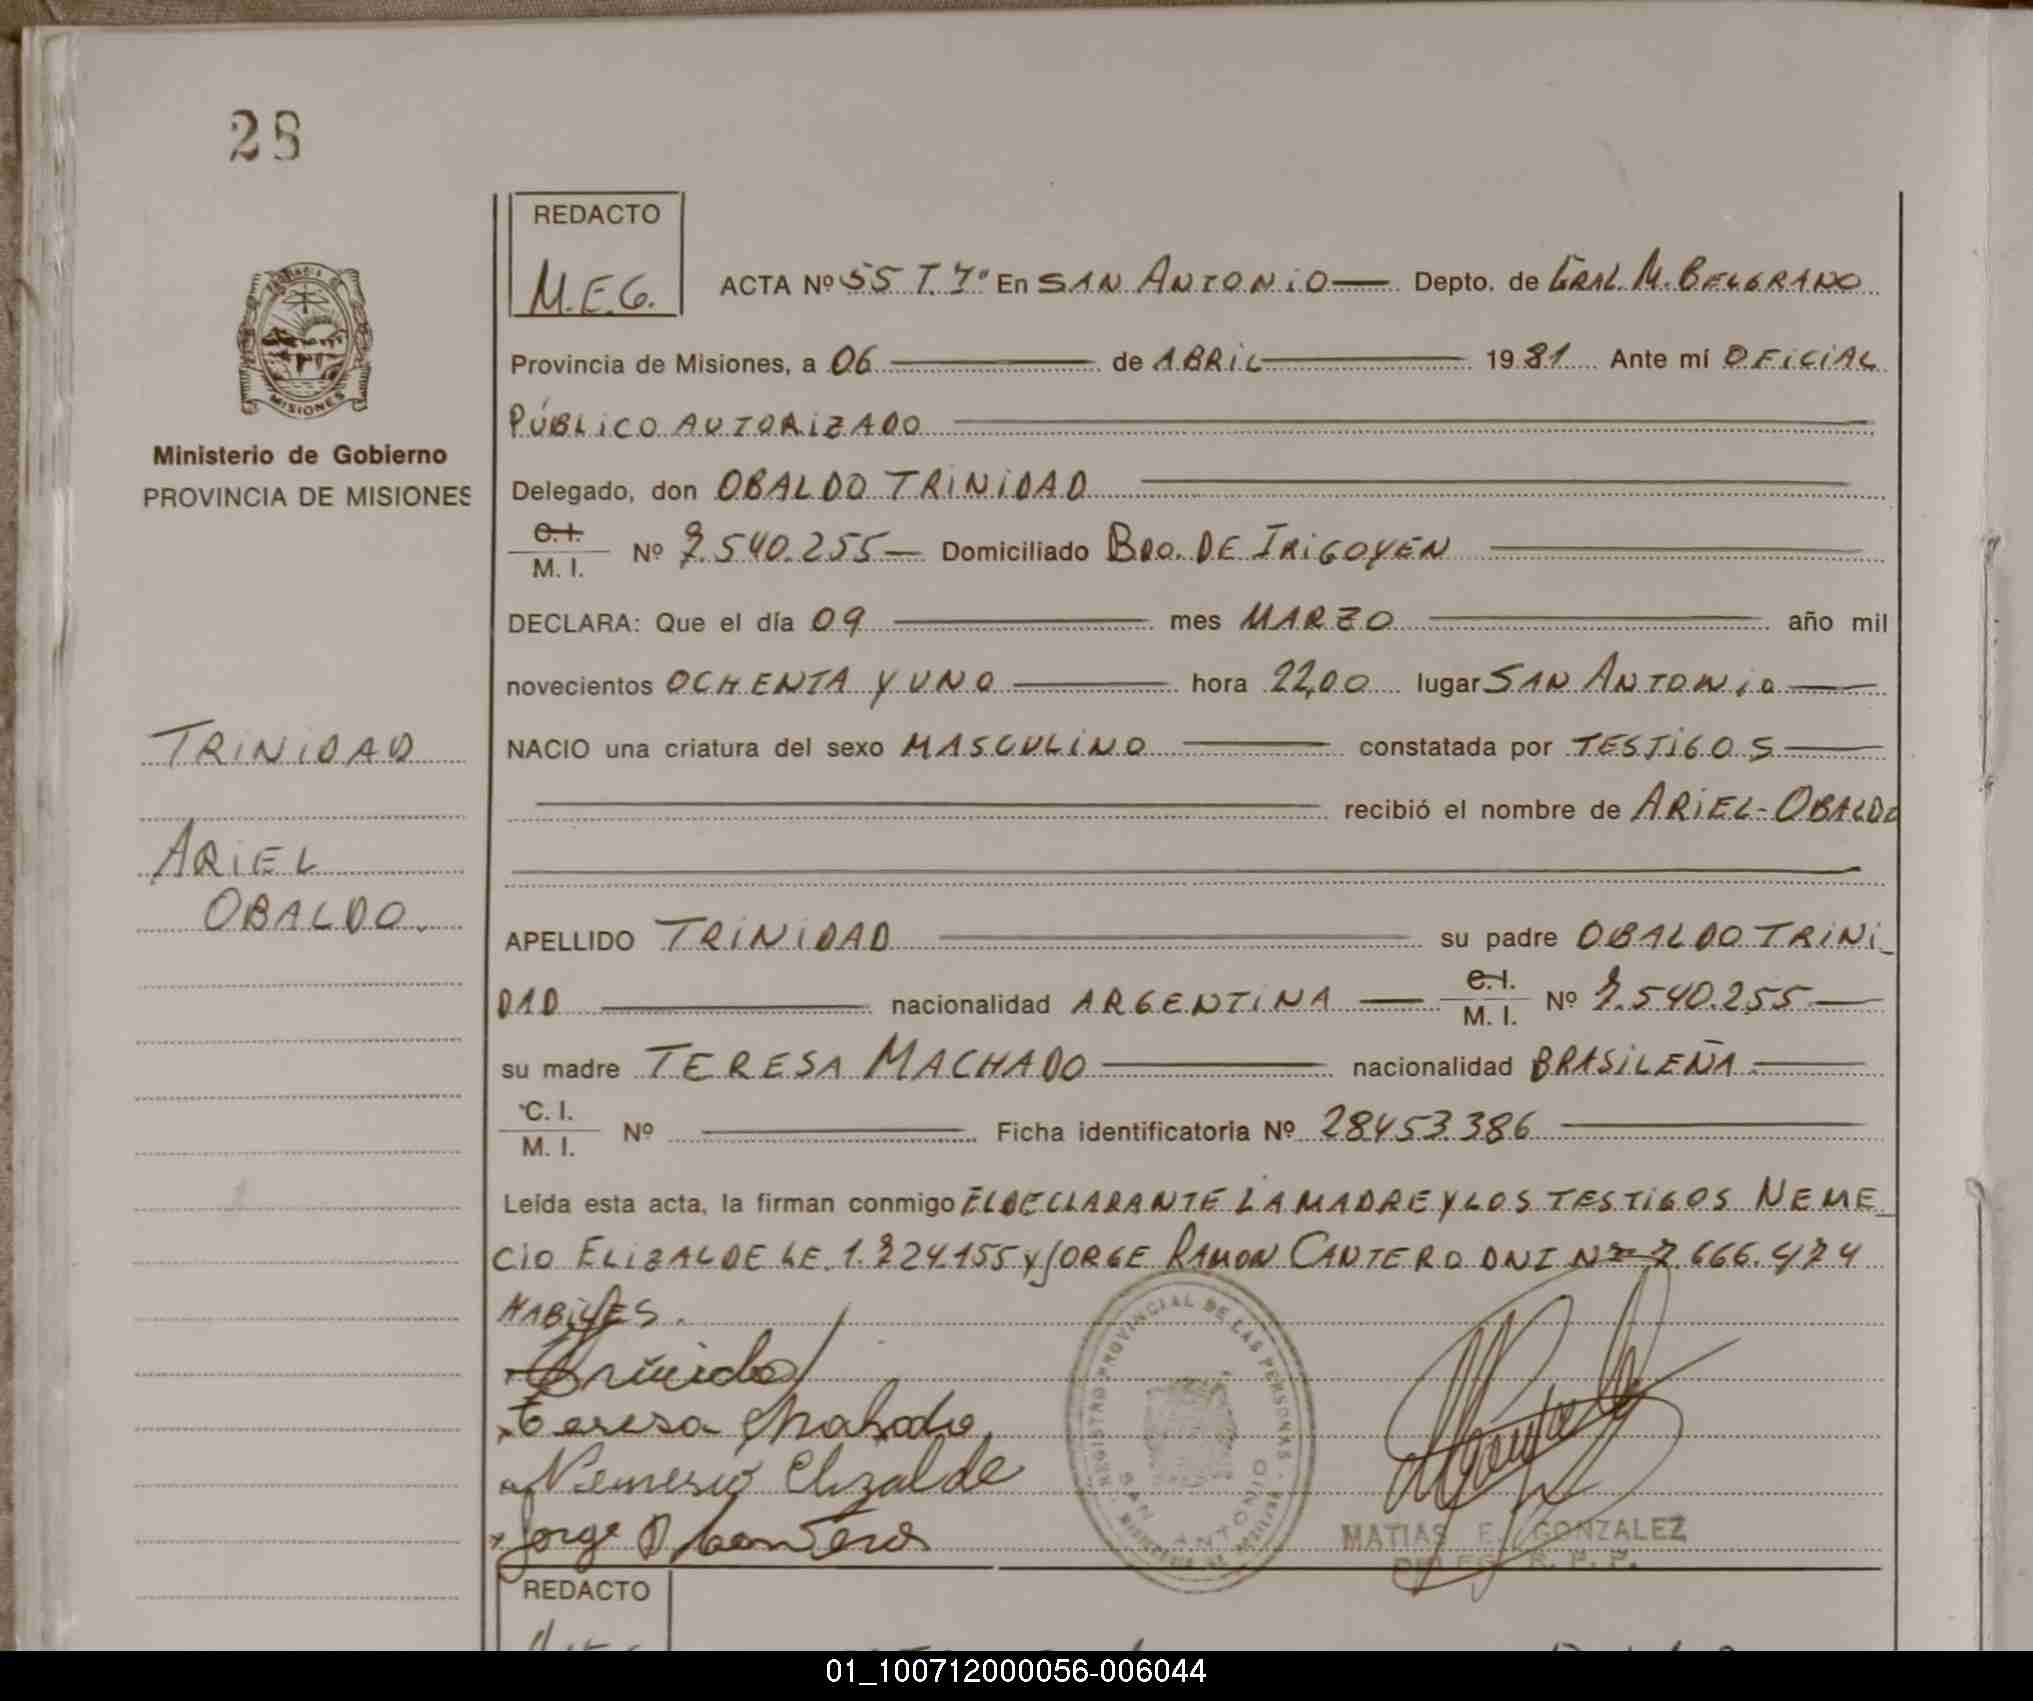 28
REDACTO
M.E.G.
ACTA Nº 55 T. 1º En SAN ANTONIO Depto. de GRAL. M. BELGRANO
Provincia de Misiones, a 06 de ABRIL 1981 Ante mí OFICIAL
PÚBLICO AUTORIZADO
Ministerio de Gobierno
PROVINCIA DE MISIONES
MISIONES
Delegado, don OBALDO TRINIDAD
C.I.
M. I. Nº 7.540.255 Domiciliado BDO. DE IRIGOYEN
DECLARA: Que el día 09 mes MARZO año mil
novecientos OCHENTA Y UNO hora 22,00 lugar SAN ANTONIO
TRINIDAD
NACIO una criatura del sexo MASCULINO constatada por TESTIGOS
recibió el nombre de ARIEL-OBALDO
ARIEL
OBALDO.
APELLIDO TRINIDAD su padre OBALDO TRINI-
DAD nacionalidad ARGENTINA C.I. M. I. Nº 7.540.255
su madre TERESA MACHADO nacionalidad BRASILEÑA
C. I.
M. I. Nº Ficha identificatoria Nº 28453.386
Leída esta acta, la firman conmigo EL DECLARANTE LA MADRE Y LOS TESTIGOS NEME_
CIO ELIZALDE LE. 1. 224.155 y JORGE RAMON CANTERO DNI Nº 7.666.474
HABILES.
Trinidad
Teresa Machado
Nemesio Elizalde
Jorge R Cantero
REGISTRO PROVINCIAL DE LAS PERSONAS
SAN ANTONIO
MATIAS E. GONZALEZ
DELEG. R. P. P.
REDACTO
01_100712000056-006044